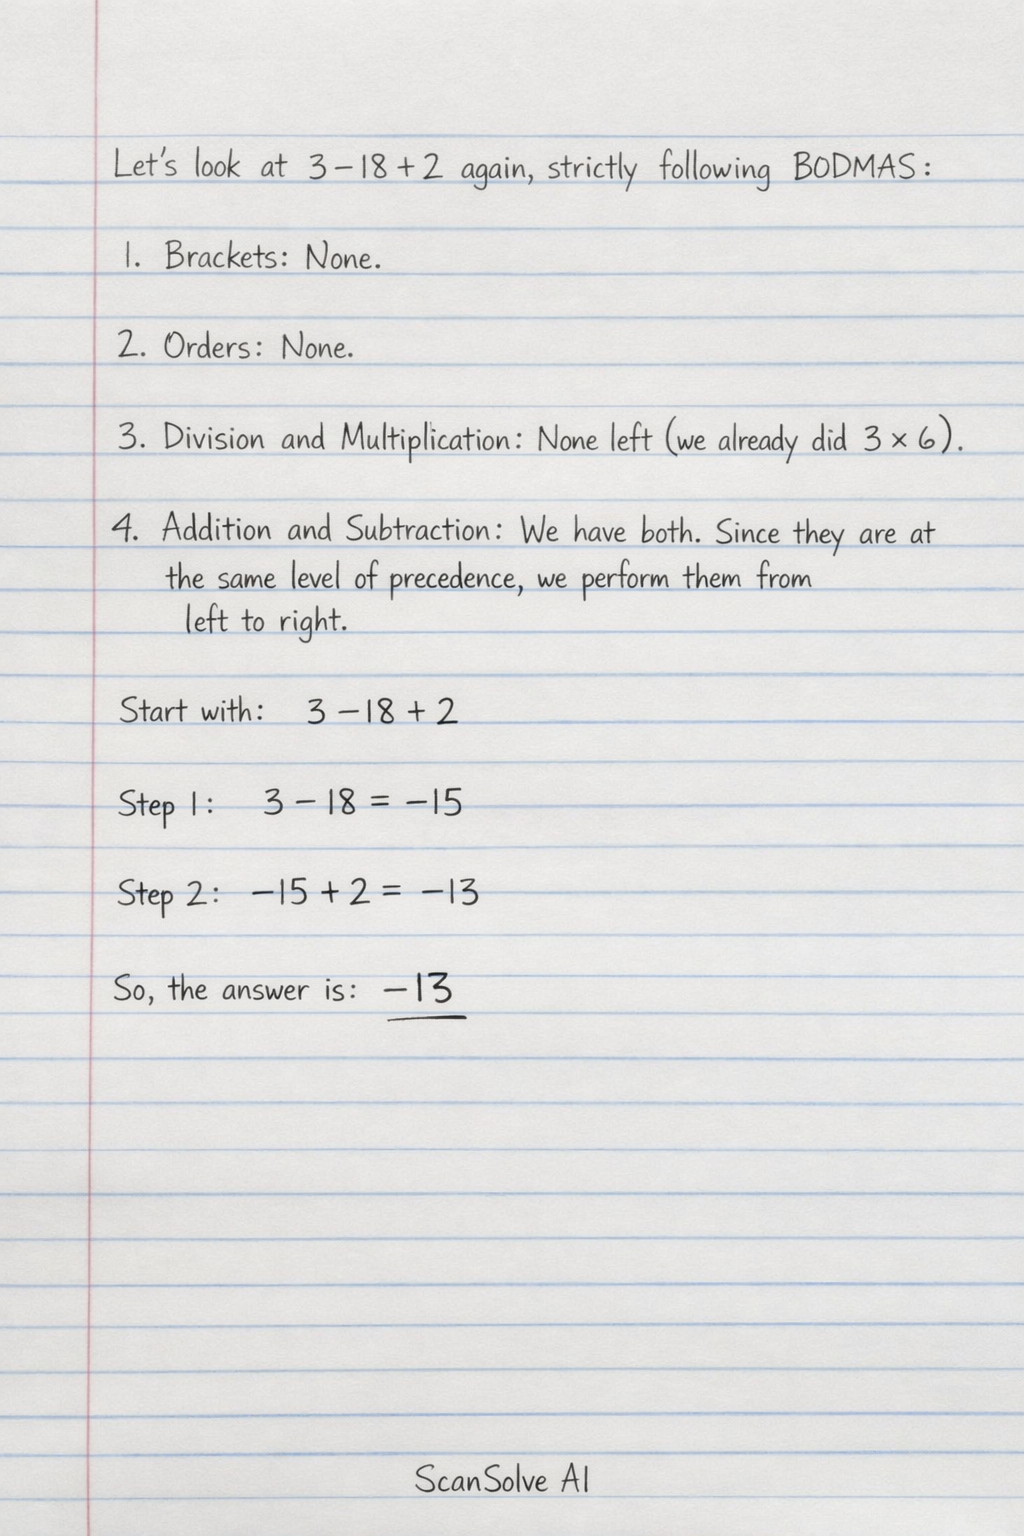 Let's look at 3 – 18 + 2 again, strictly following BODMAS:
1. Brackets: None.
2. Orders: None.
3. Division and Multiplication: None left (we already did 3 × 6).
4. Addition and Subtraction: We have both. Since they are at
the same level of precedence, we perform them from
left to right.
Start with: 3 – 18 + 2
Step 1: 3 – 18 = –15
Step 2: –15 + 2 = –13
So, the answer is: –13
ScanSolve AI